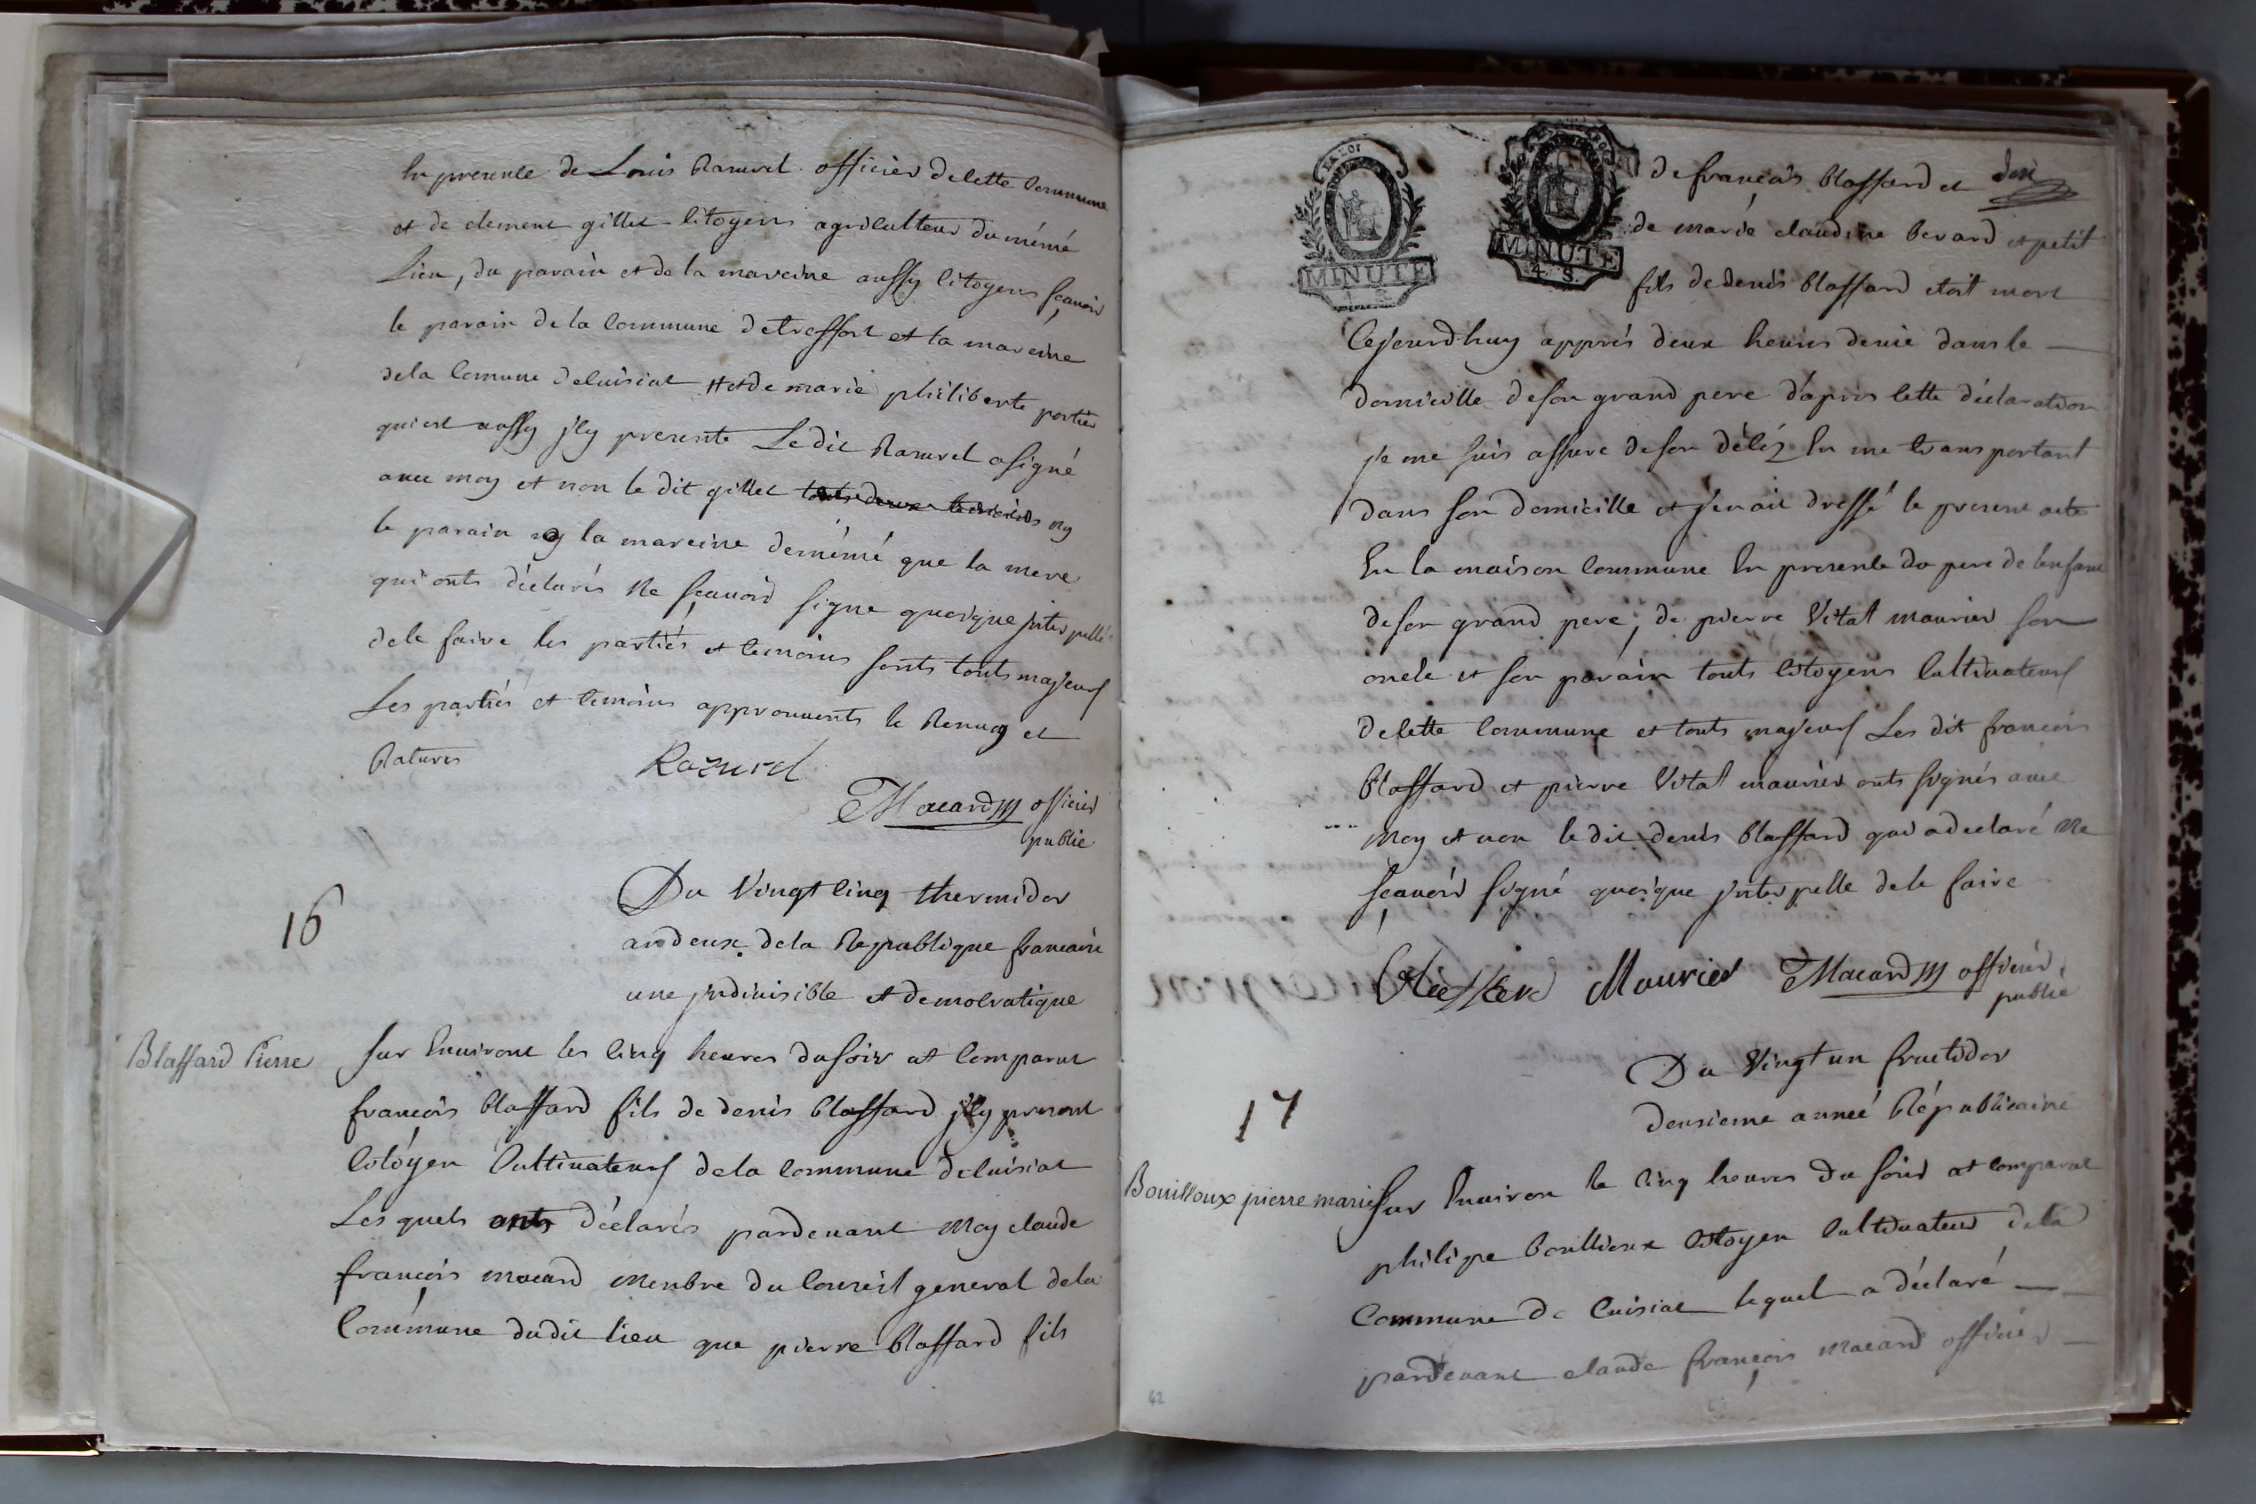 En presence de Louis Razurel officier de cette commune
et de clement gillet citoyens agriculteur du mémé
Lieu, du parain et de la mareine aussy citoyens sçavoir
le parain de la commune de treffort et la mareine
de la comune de cuisiat # et de marie philiberte
qui est aussy j'cy presente Le dit Razurel a signé
avec moy et non le dit gillet ny
le parain ny la mareine de mémé que la mere
qui onts déclarés ne sçavoir signe quoique jnterpellés
de le faire les partiés et temoins sonts touts majeurs
Les partiés et temoins approuvents le Renvoy et
Ratures
Razurel
Macard officier
public
16
Du Vingt cinq thermidor
an deux de la Republique francaise
une jndivisible et democratique
Blaffard Pierre
sur Environt les cinq heures du soir at comparut
françois blaffard fils de denis blaffard j'cy present
Citóyen Cultivateurs de la commune de cuisiat
Les quels onts déclarés pardevant moy claude
françois macard membre du conseil general de la
Commune du dit lieu que pierre blaffard fils
LA LOI
MINUTE
MINUTE
4 S.
de françois blaffard et
de marie claudine berard et petit
fils de denis blaffard etoit mort
Cejourd'huy apprés deux heures demie dans le
domicille de son grand pere d'apres cette déclaration
je me suis assure de son décés En me transportant
dans son domicille et j'en ait dressé le present acte
En la maison commune En presence du pere de l'enfant
de son grand pere, de pierre Vital maurier son
oncle et son parain touts citoyens Cultivateurs
de cette commune et touts majeurs Les dit francois
blaffard et pierre Vital maurier onts signés avec
moy et non le dit denis blaffard qui a declaré ne
sçavoir signé quoique jnterpelle de le faire
Maurier Macard officier
public
17
Du Vingt un fructidor
deuxieme anneé Républicaine
Bouilloux pierre marie
Sur Environ le cinq heures du soir at comparut
philipe boullioux citoyen Cultivateur de la
Commune de Cuisiat lequel a déclaré
pardevant claude françois macard officier
42